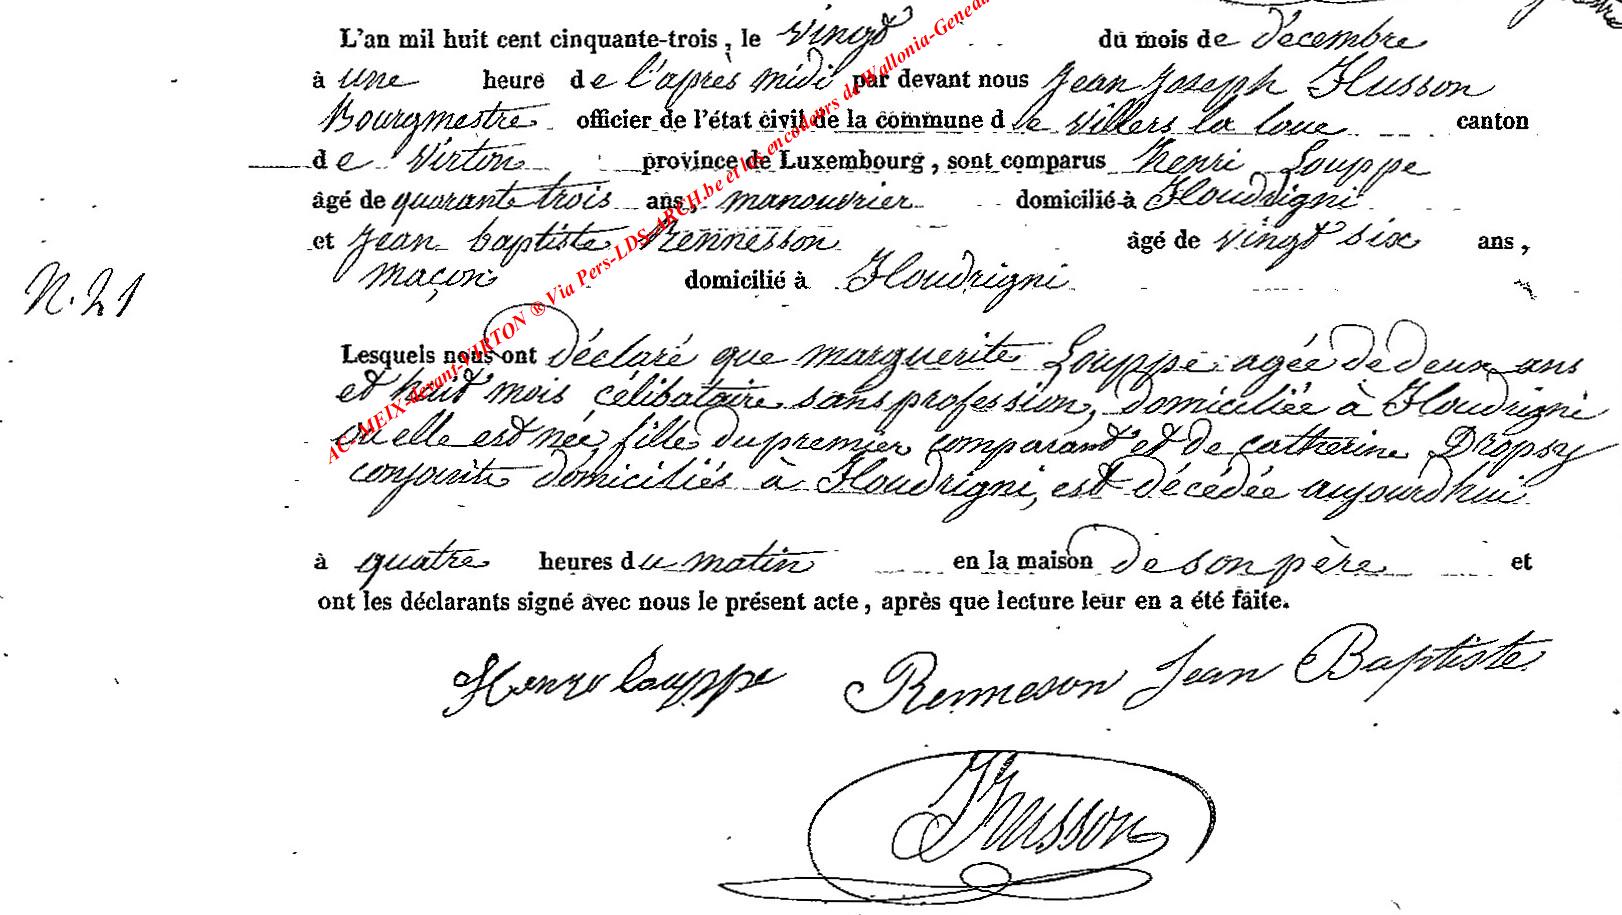 L'an mil huit cent cinquante-trois, le vingt du mois de décembre
à une heure de l'après midi par devant nous Jean Joseph Husson
Bourgmestre officier de l'état civil de la commune d de villers la loue canton
de Virton province de Luxembourg, sont comparus henri Louppe
âgé de quarante trois ans, manouvrier domicilié à Houdrigni
et Jean baptiste Rennesson âgé de vingt six ans,
maçon domicilié à Houdrigni
N. 21
Lesquels nous ont déclaré que marguerite Louppe agée de deux ans
et huit mois célibataire sans profession, domiciliée à Houdrigni
ou elle est née, fille du premier comparant et de catherine Dropsy
conjoints domiciliés à Houdrigni, est décédée aujourdhui
à quatre heures du matin en la maison de son père et
ont les déclarants signé avec nous le présent acte, après que lecture leur en a été faite.
Henri louppe Renneson Jean Baptiste
JHusson
AC-MEIX-devant-VIRTON ® Via Pers-LDS-ARCH.be et les encodeurs de Wallonia-Genea